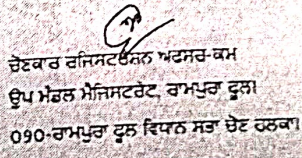 ਚੋਣਕਾਰ ਰਜਿਸਟਰੇਸ਼ਨ ਅਫਸਰ-ਕਮ
ਉਪ ਮੰਡਲ ਮੈਜਿਸਟਰੇਟ, ਰਾਮਪੁਰਾ ਫੂਲ।
090-ਰਾਮਪੁਰਾ ਫੂਲ ਵਿਧਾਨ ਸਭਾ ਚੋਣ ਹਲਕਾ।